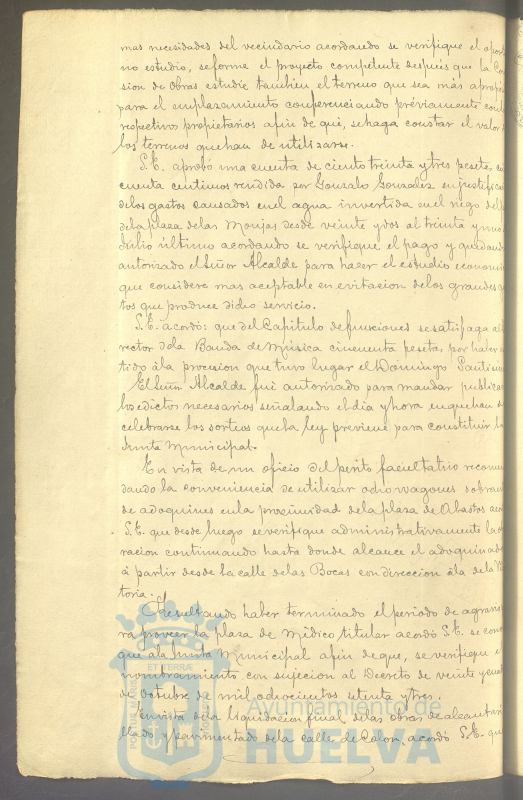 mas necesidades del vecindario acordando se verifique el opor
no estudio, se forme el proyecto competente despues que la Co
sion de Obras estudie tambien el terreno que sea más apropó
para el emplazamiento conferenciando préviamente con l
respectivos propietarios afin de que, se haga constar el valor d
los terrenos que han de utilizarse.
S.E. aprobó una cuenta de ciento treinta y tres pesetas, ci
cuenta centimos rendida por Gonzalo Gonzalez en justifica
de los gastos causados en el agua invertida en el riego del
de la plaza de las Monjas desde veinte y dos al treinta y uno
Julio último acordando se verifique el pago y quedando
autorizado el Señor Alcalde para hacer el estudio economi
que considere mas aceptable en evitacion de los grandes ga
tos que produce dicho servicio.
S.E. acordó: que del Capitulo de funciones se satisfaga al
rector de la Banda de Música cincuenta pesetas, por haber
tido á la procesion que tuvo lugar el Domingo
El Señor Alcalde fué autorizado para mandar publicar
los edictos necesarios señalando el dia y hora en que han d
celebrarse los sorteos que la ley previene para constituir la
Junta Municipal.
En vista de un oficio del perito facultativo recomen
dando la conveniencia de utilizar ocho wagones sobran
de adoquines en la proximidad de la plaza de Abastos acor
S.E. que desde luego se verifique administrativamente la o
racion continuando hasta donde alcance el adoquinado
á partir desde la calle de las Bocas con direccion á la de la Vic
toria.
Resultando haber terminado el periodo de
ra proveer la plaza de Médico titular acordó S.E. se conv
que á la Junta Municipal afin de que, se verifique el
nombramiento con sujecion al Decreto de veinte y cuat
de Octubre de mil ochocientos setenta y tres.
En vista de la liquidacion final de las obras de alcantari
llado y pavimentado de la calle de Colon, acordó S.E. que
PORTUS MARIS
ET TERRÆ
CUSTODIA
Ayuntamiento de
HUELVA